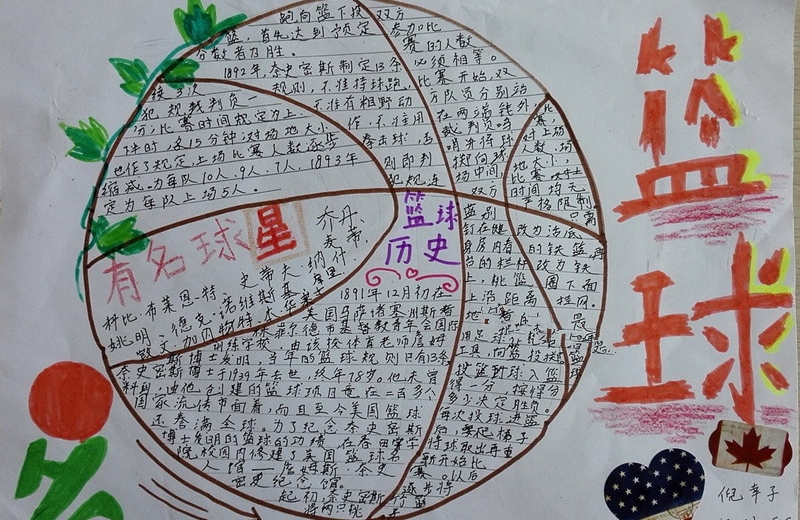 跑向篮下投 双方
篮,首先达到预定 参加比
分数者为胜。 赛的人数
必须相等。
1892年,奈史密斯制定13条
规则,不准持球跑, 比赛开始,双
犯规裁判负 不准有粗野动 方队员分别站
分;比赛时间规定为上、 作,不准用 在两端线外,
下半时,各15分钟;对场地大小 拳击球,否 裁判员鸣
也作了规定。上场比赛人数逐步 则即判 哨并将球
缩减,为每队10人、9人、7人,1893年 犯规,连 掷向球
定为每队上场5人。 场中间,
双方
篮球
历史
有名球星
乔丹、
麦蒂、
纳什、
史蒂夫
科比·布莱恩特、
姚明、德克·诺维斯基
凯文·加内特
1891年12月初在
美国马萨诸塞州斯普
林菲尔德市基督教青年会国际
训练学校,由该校体育老师詹姆
斯博士发明,当年的篮球规则只有13条
奈史密斯博士于1939年去世,终年78岁。他未曾
料到,由他创建的篮球项目竟在二百多个
国家流传,而且至今美国篮球
还誉满全球。为了纪念奈史密斯
博士发明的篮球的功绩,在春田学
院校园内修建了美国篮球名
人馆——詹姆斯·奈史
密史纪念馆。
起初,奈史密斯
将两只桃
篮别
钉在健
身房内看
台的栏杆
上,桃篮
上沿距离
用足球
工具,向篮投掷。
投篮球入篮
得一分,按得分
多少决定胜负。
每次投球进篮
后,要爬梯子
将球取出再重
新开始比
赛。以后
逐步将
改为活底
的铁篮,再
改为铁
圈下面
挂网。
对上场
人数、场
地大小,
比赛
时间均无
严格限制。
只需
篮
球
倪幸子